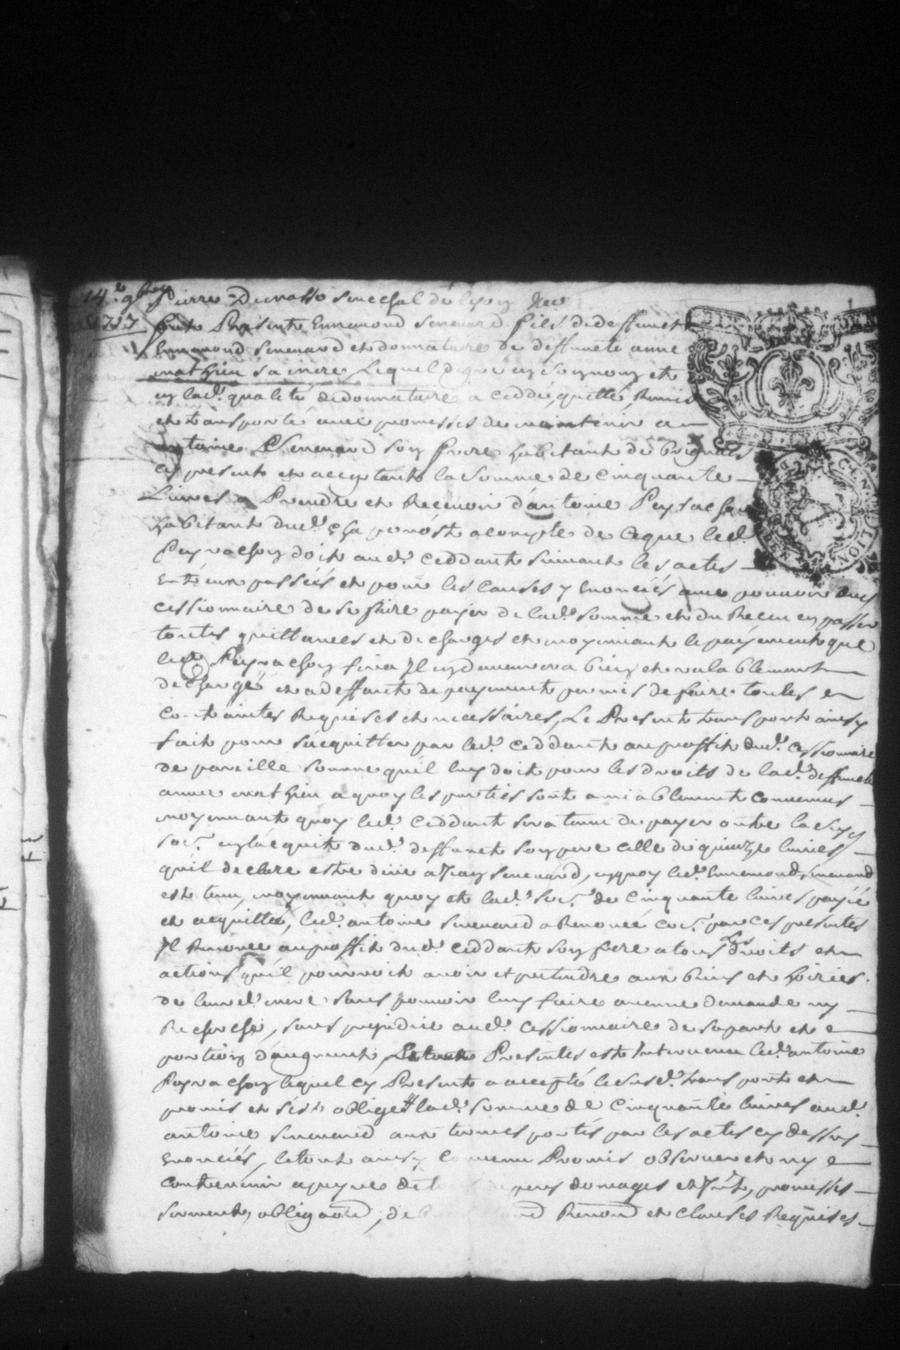 14.e 9bre
1737
Pierre Dumas Senechal de lyon
fut Present Ennemond Senenard fils de deffunct
Ennemond Senenard et donnataire de deffuncte anne
mathieu sa mere Lequel de gré en son nom et
en lad. qualité de donnataire a ceddé, quitté Remis
et transporté avec promesses de maintenir a
antoine Senenard son frere habitant de brignais
cy present et acceptant la somme de cinquante
Livres a Prendre et Recevoir d'antoine Peyrachon
habitant dud. a compte de ce que led.
Peyrachon doit aud. ceddant suivant les actes
Entr'eux passées et pour les causes y Enoncées avec pouvoir aud.
cessionnaire de se faire payer de lad. somme et du Receu en passer
toutes quittances et descharges et moyennant le payement que
led. Peyrachon fera Il en demeurera bien et valablement
dechargé et a deffaut de payement permis de faire toutes
contraintes Requises et necessaires, Le Present transport ainsy
fait pour s'acquitter par led. ceddant au proffit dud. cessionnaire
de pareille somme qu'il luy doit pour les droits de lad. deffuncte
anne mathieu a quoy les parties sont amiablement convenues
moyennant quoy led. ceddant sera tenu de payer outre la susd.
so.e en l'acquit dud. deffunct son pere celle de quinze livres
qu'il declare estre düe a Jean Senenard, en quoy led. Ennemond Senenard
est tenu, moyennant quoy et lad. so.e de cinquante livres payée
et acquittée, led. antoine Senenard a Renoncé par ces presentes
Il Renonce au proffit dud. ceddant son frere a tous droits et
actions qu'il pourroit avoir et pretendre aux biens et hoiries
de leurd. mere sans pouvoir luy faire aucune demande ny
Recherche, sans prejudice aud. cessionnaire de sa part et
portion d'augment, Presentes est Intervenu led. antoine
Peyrachon lequel cy Present a accepté le susd. transport et
promis et s'est obligé lad. somme de cinquante livres aud.
antoine Senenard aux termes portés par les actes cy dessus
Enoncées, le tout ainsy convenu Promis observer et ny
contrevenir a peyne de tous depens domages et Int., promesses
serment, obligaõn, Renonõn et clauses Requises